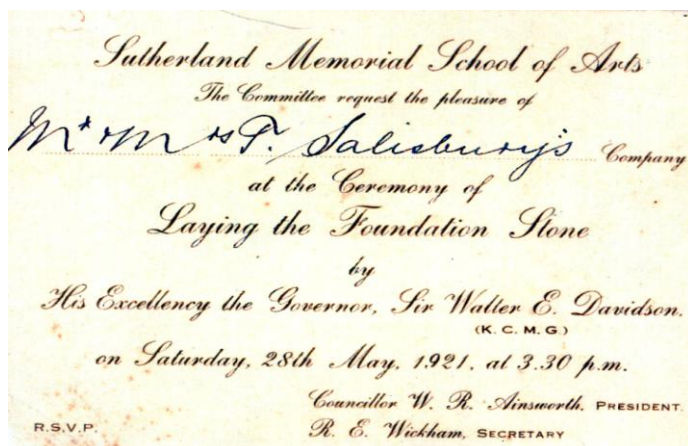 Sutherland Memorial School of Arts
The Committee request the pleasure of
Mr & Mrs F. Salisbury's Company
at the Ceremony of
Laying the Foundation Stone
by
His Excellency the Governor, Sir Walter E. Davidson.
(K.C.M.G.)
on Saturday, 28th May, 1921, at 3.30 p.m.
Councillor W. R. Ainsworth, PRESIDENT.
R.S.V.P. R. E. Wickham, SECRETARY